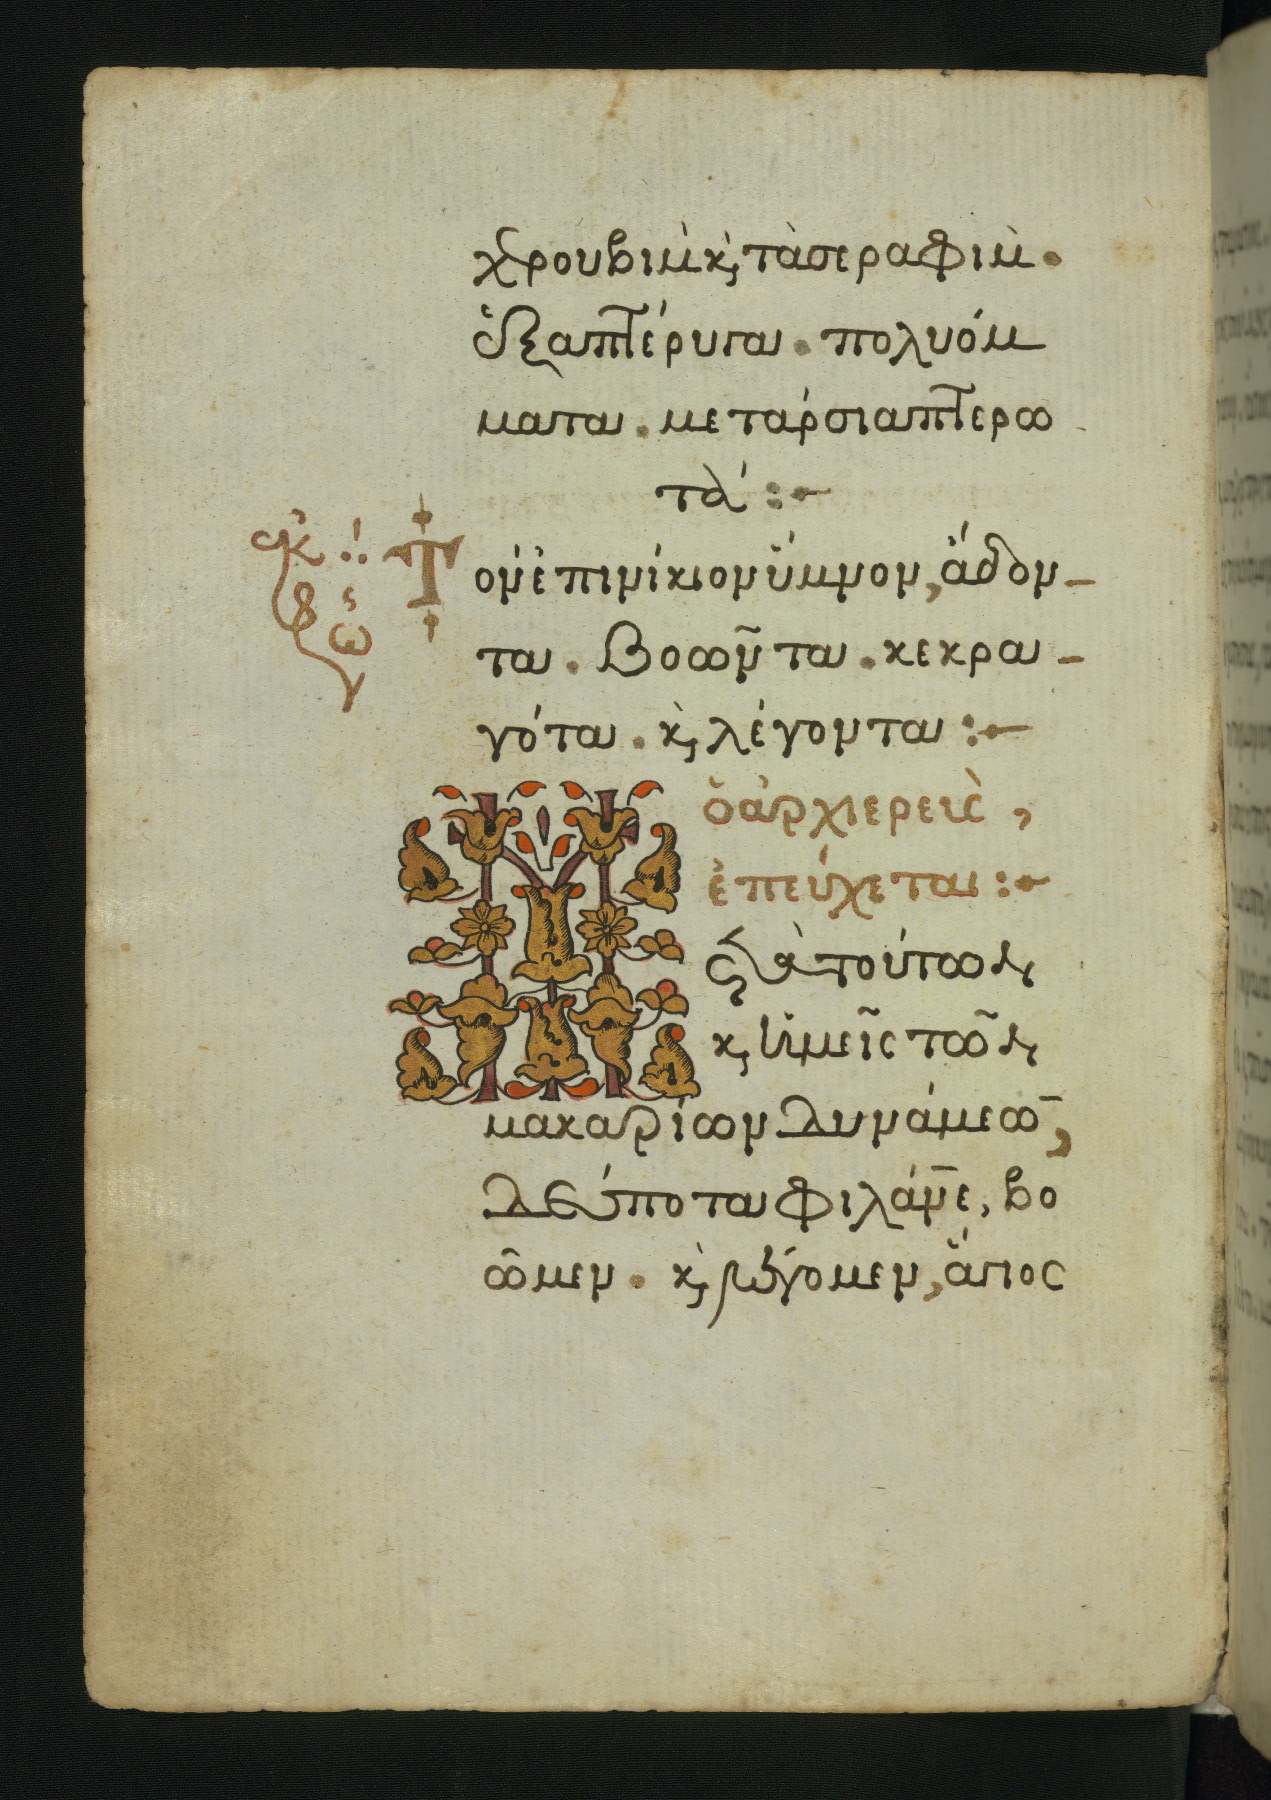 χερουβιμ κ, τὰ σεραφιμ.
ἑξαπτέρυγα. πολυόμ
ματα. μετάρσια πτερω
τά :-
Τὸν ἐπινίκιον ὕμνον, ᾄδον-
τα. βοῶντα. κεκρα-
γότα. κ, λέγοντα :-
ὁ ἀρχιερεὺς,
ἐπεύχεται :-
Μετὰ τούτων
κ, ἡμεῖς τῶν
μακαρίων δυνάμεω̄,
δέσποτα φιλάν̄ε, βο
ῶμεν. κ, λέγομεν, ἅγιος